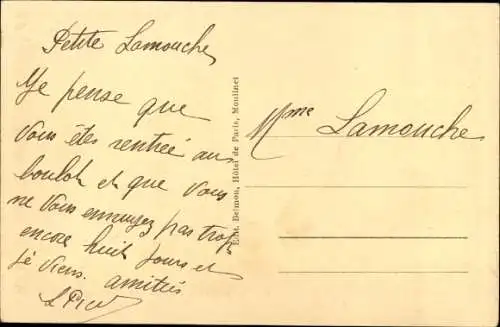 Petite Lamouche,
Je pense que
vous êtes rentrée au
boulot et que vous
ne vous ennuyez pas trop,
encore huit jours et
je viens. amitiés
Edit. Delmon, Hôtel de Paris, Moulinet
Mme Lamouche